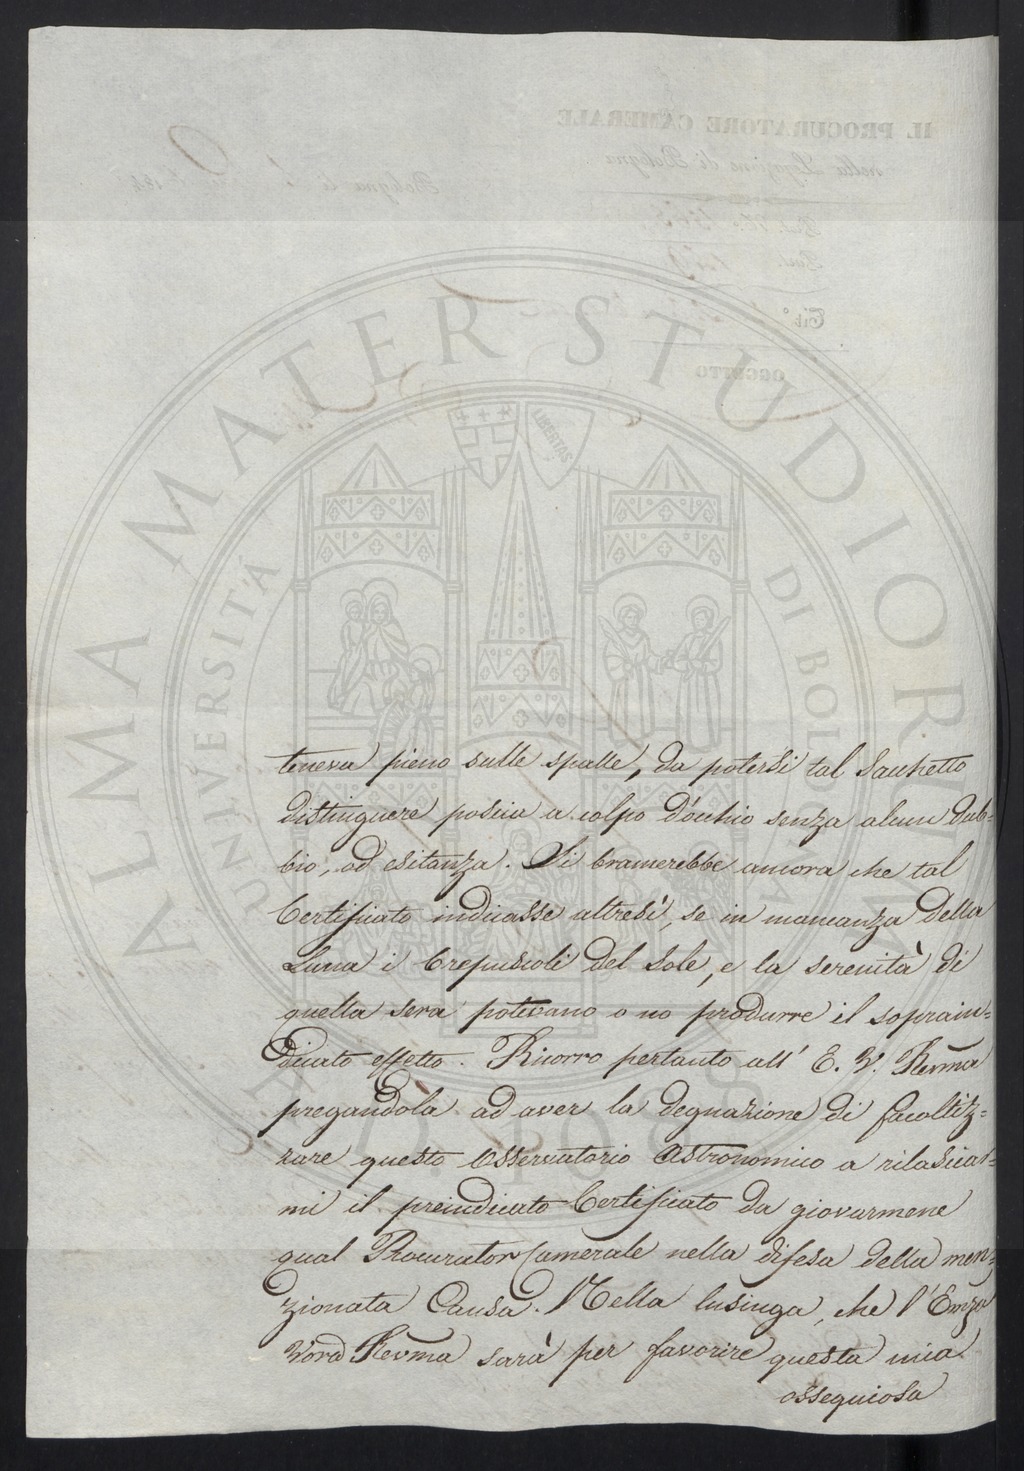 teneva pieno sulle spalle, da potersi tal Sacchetto
distinguere poscia a colpo d'occhio senza alcun dub=
bio, od esitanza. Si bramerebbe ancora che tal
Certificato indicasse altresì, se in mancanza della
Luna i Crepuscoli del Sole, e la serenità di
quella sera potevano o no produrre il soprain=
dicato effetto. Ricorro pertanto all' E. V. Revma
pregandola ad aver la degnazione di facoltiz=
zare questo Osservatorio Astronomico a rilasciar=
mi il preindicato Certificato da giovarmene
qual Procurator Camerale nella difesa della men=
zionata Causa. Nella lusinga, che l'Emza
Vora Revma sarà per favorire questa mia
ossequiosa
ALMA MATER STUDIORUM
UNIVERSITÀ DI BOLOGNA
LIBERTAS
A.D. 1088
IL PROCURATORE CAMERALE
nella Legazione di Bologna
Bologna li
Tit°
OGGETTO